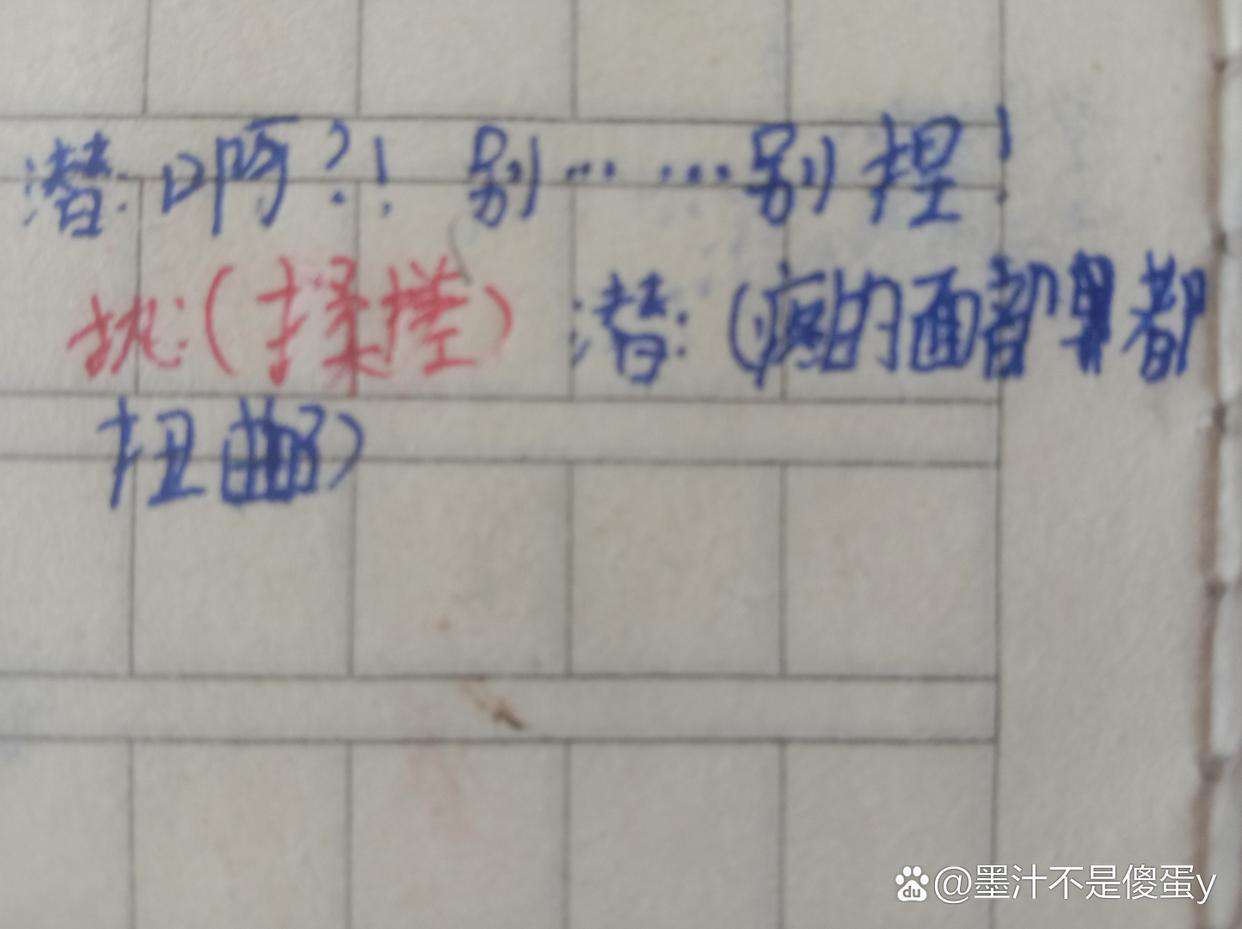 潜:啊?!别……别捏!
执:(揉捏)潜:(痛的面部都
扭曲了)
@墨汁不是傻蛋y